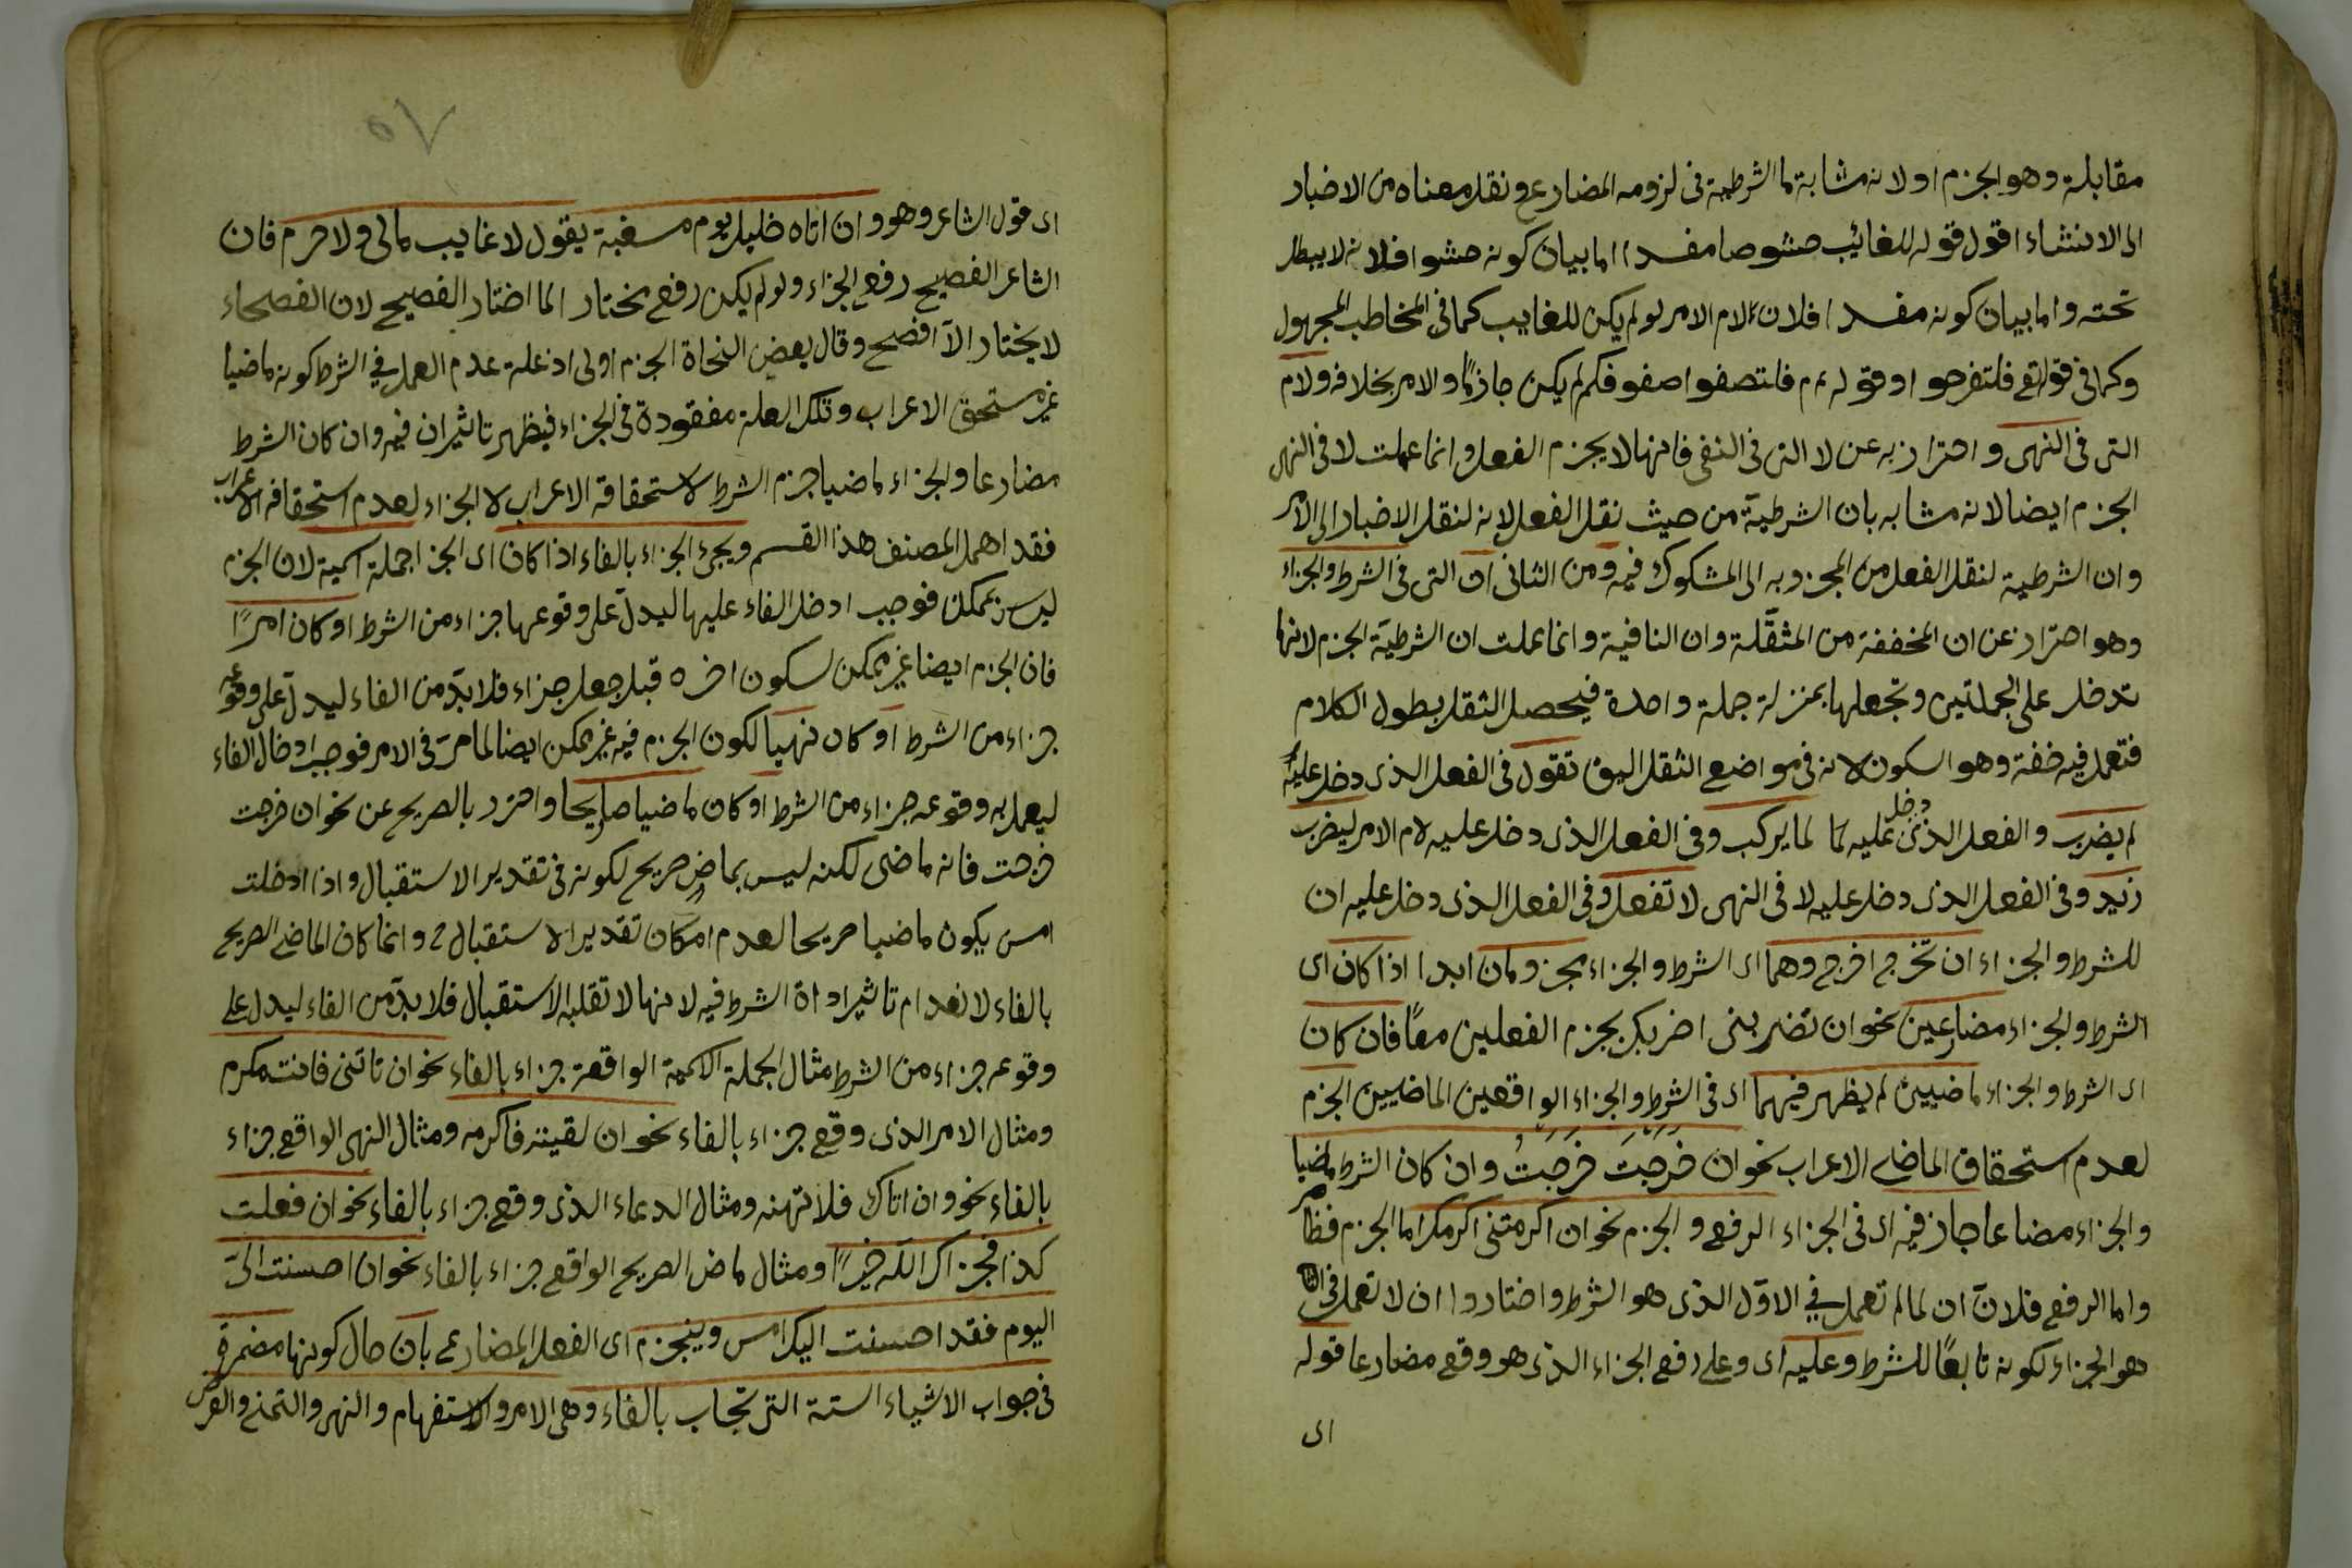 مقابلة وهو الجزم او لانه مشابة ما الشرطية فى لزومه المضارع ونقل معناه من الاخبار
الى الانشاء اقول قوله للغائب حشو صا مفسدا اما بيان كونه حشوا فلانه لا يبطل
تحته واما بيان كونه مفسدا فلان لام الامر لو لم يكن للغايب كما فى المخاطب المجهول
وكما فى قوله تع فلتفرحوا وقوله م فلتصفوا صفوفكم لم يكن جازمًا والامر بخلافه ولام
التى فى النهى واحترازبه عن لا التى فى النفى فانها لا يجزم الفعل وانما عملت لا فى النهى
الجزم ايضا لانه مشابه بان الشرطية من حيث نقل الفعل لانه لنقل الاخبار الى الامر
وان الشرطية لنقل الفعل من المجزوبه الى المشكوك فيه ومن الثانى ان التى فى الشرط والجزاء
وهو احتراز عن ان المخففة من المثقّلة وان النافية وانما عملت ان الشرطيّة الجزم لانها
تدخل على الجملتين وتجعلها بمنزلة جملة واحدة فيحصل الثقل بطول الكلام
فتعمل فيه خفة وهو السكون لانه فى مواضع الثقل اليق تقول فى الفعل الذى دخل عليه
لم يضرب والفعل الذى دخل عليه لمّا لما يركب وفى الفعل الذى دخل عليه لام الامر ليضرب
زيد وفى الفعل الذى دخل عليه لا فى النهى لا تفعل وفى الفعل الذى دخل عليه ان
للشرط والجزاء ان تخرج اخرج وهما اى الشرط والجزاء مجزومان ابدا اذا كان اى
الشرط والجزاء مضارعين نحو ان تضربنى اضربك بجزم الفعلين معًا فان كان
اى الشرط والجزاء ماضيين لم يظهر فيهما اى فى الشرط والجزاء الواقعين الماضيين الجزم
لعدم استحقاق الماضى الاعراب نحو ان خَرجتَ خَرجتُ وان كان الشرط ماضيا
والجزاء مضاعا جاز فيه اى فى الجزاء الرفع والجزم نحو ان اكرمتنى اكرمك اما الجزم فظاهر
واما الرفع فلانّ ان لما لم تعمل فى الاوّل الذى هو الشرط واختاروا ان لا تعمل فى
هو الجزاء لكونه تابعًا للشرط وعليه اى وعلى رفع الجزاء الذى هو وقع مضارعا قوله
اى
٥٧
اى قول الشاعر وهو وان اتاه خليل يوم مسغبة يقول لا غايب مالى ولا حرم فان
الشاعر الفصيح رفع الجزاء ولو لم يكن رفع بختار الما اختار الفصيح لان الفصحاء
لا يختار الّا افصح وقال بعض النحاة الجزم اولى اذ علة عدم العمل فى الشرط كونه ماضيا
غير مستحق الاعراب وتلك العلة مفقودة فى الجزاء فيظهر تاثير ان فيه وان كان الشرط
مضارعا والجزاء ماضيا جزم الشرط لاستحقاقه الاعراب لا الجزاء لعدم استحقاقه الاعراب
فقد اهمل المصنف هذا القسم ويجئ الجزاء بالفاء اذا كان اى الجزا جملة اسمية لان الجزم
ليس بممكن فوجب ادخل الفاء عليها ليدلّ على وقوعها جزاء من الشرط او كان امرًا
فان الجزم ايضا غير ممكن لسكون اخره قبل جعل جزاء فلا بدّ من الفاء ليدلّ على وقوعه
جزاء من الشرط او كان نهيا لكون الجزم فيه غير ممكن ايضا لما مرّ فى الامر فوجب ادخال الفاء
ليعمل به وقوعه جزاء من الشرط او كان ماضيا صريحا واحترز بالصريح عن نحو ان خرجت
خرجت فانه ماضى لكنه ليس بماضٍ صريح لكونه فى تقدير الاستقبال واذا ادخلت
امس يكون ماضيا صريحا لعدم امكان تقدير الاستقبال ح وانما كان الماضى الصريح
بالفاء لانعدام تاثير اداة الشرط فيه لانها لا تقلبه الاستقبال فلا بدّ من الفاء ليدل على
وقوعه جزاء من الشرط مثال الجملة الاسمية الواقعة جزاء بالفاء نحو ان تاتنى فانت مكرم
ومثال الامر الذى وقع جزاء بالفاء نحو ان لقيته فاكرمه ومثال النهى الواقع جزاء
بالفاء نحو وان اتاك فلا تهنه ومثال الدعاء الذى وقع جزاء بالفاء نحو ان فعلت
كذا فجزاك اللّه خيرًا ومثال ماض الصريح الواقع جزاء بالفاء نحو ان احسنت الىّ
اليوم فقد احسنت اليك امس وينجزم اى الفعل المضارع بان حال كونها مضمرة
فى جواب الاشياء الستة التى تجاب بالفاء وهى الامر والاستفهام والنهى والتمنى والعرض